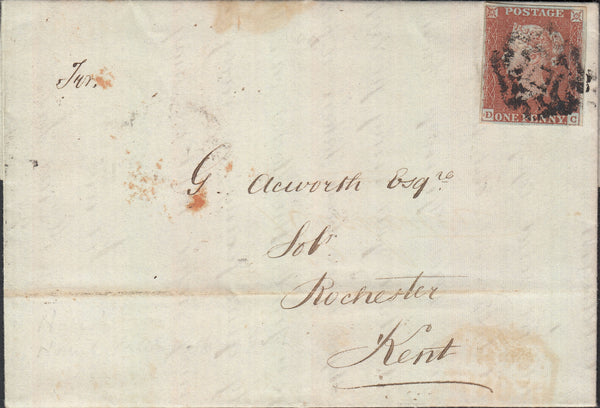 POSTAGE
D C
ONE PENNY
G. Acworth Esqre
Solr
Rochester
Kent